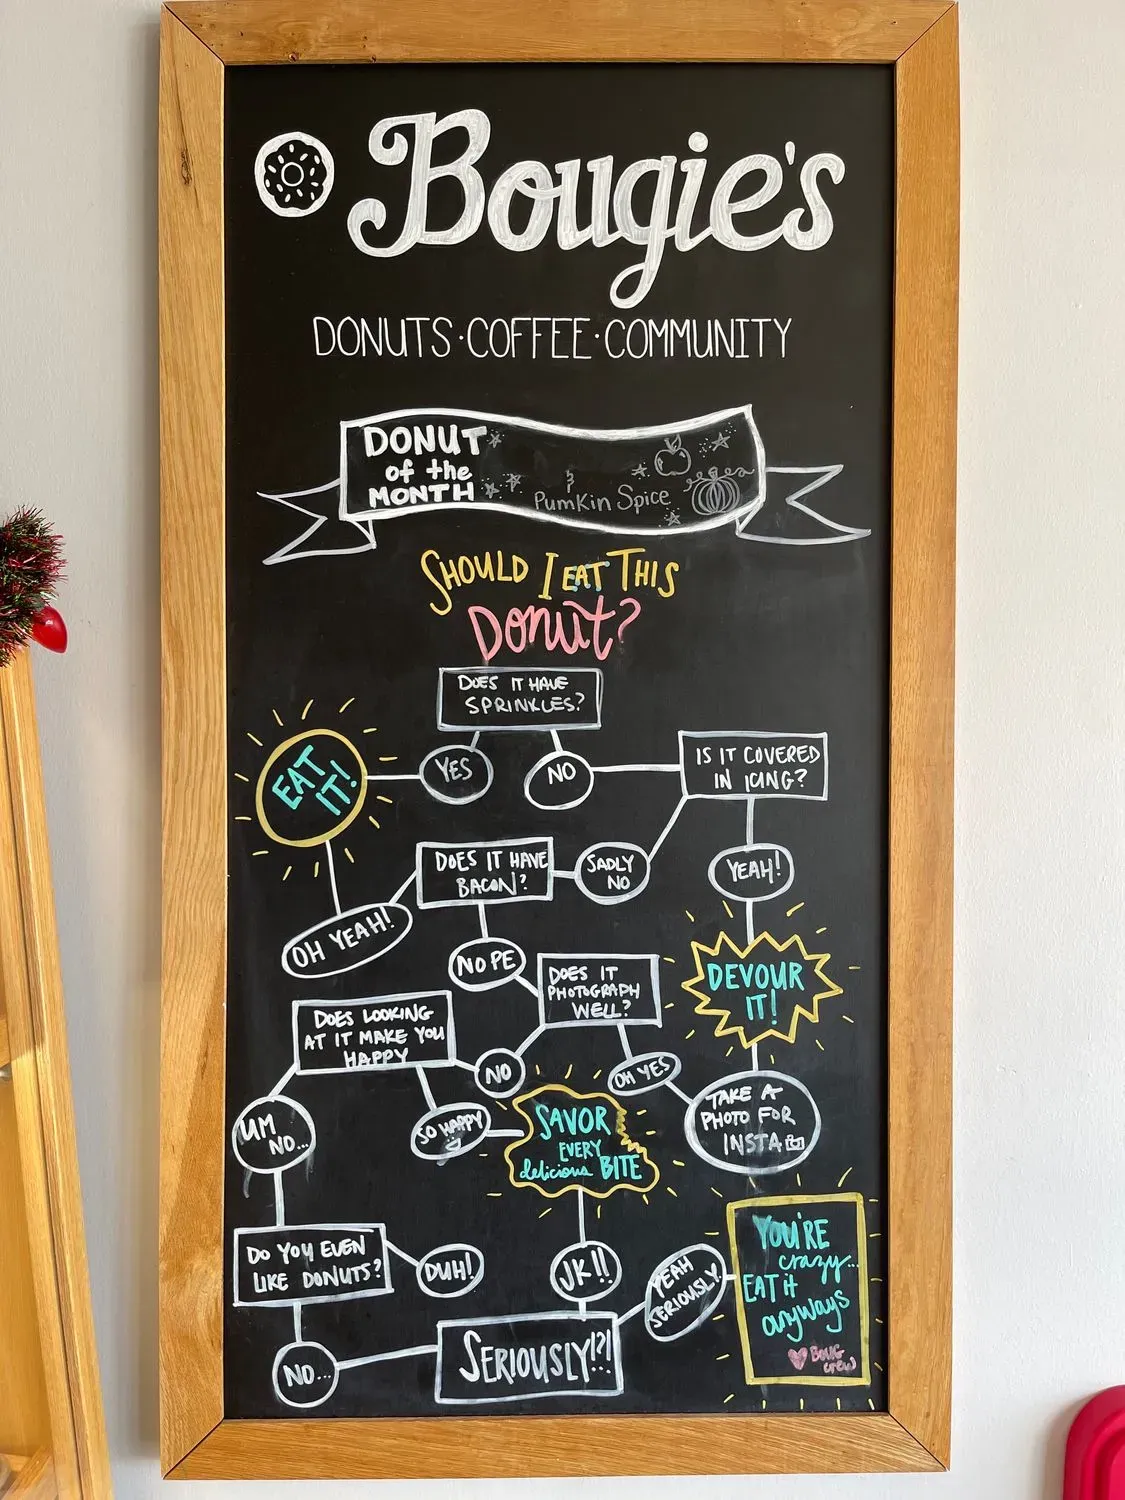 Bougie's
DONUTS·COFFEE·COMMUNITY
DONUT
of the
MONTH
Pumkin Spice
SHOULD I EAT THIS
Donut?
DOES IT HAVE
SPRINKLES?
YES
NO
EAT
IT!
IS IT COVERED
IN ICING?
SADLY
NO
YEAH!
DOES IT HAVE
BACON?
OH YEAH!
NOPE
DOES IT
PHOTOGRAPH
WELL?
DEVOUR
IT!
DOES LOOKING
AT IT MAKE YOU
HAPPY
NO
OH YES
TAKE A
PHOTO FOR
INSTA
UM
NO...
SO HAPPY
SAVOR
EVERY
delicious BITE
DO YOU EVEN
LIKE DONUTS?
DUH!
JK!!
YEAH
SERIOUSLY
YOU'RE
crazy...
EAT it
anyways
BOUG
crew
NO...
SERIOUSLY!?!